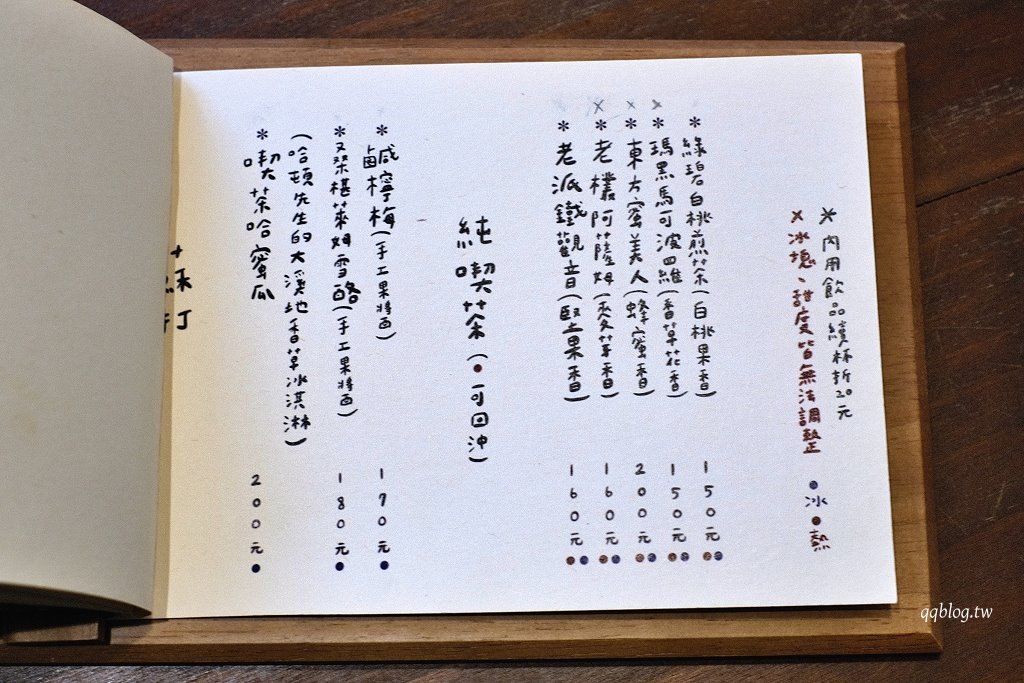 ※ 內用飲品續杯折20元
× 冰塊、甜度皆無法調整 ●冰 ●熱
* 綠碧白桃煎茶(白桃果香) 150元
* 瑪黑馬可波四維(香草花香) 150元
* 東方蜜美人(蜂蜜香) 200元
* 老欉阿薩姆(麥芽香) 160元
* 老派鐵觀音(堅果香) 160元
純喫茶(●可回沖)
* 鹹檸梅(手工果醬西) 170元
* 双桑椹萊姆雪酪(手工果醬西) 180元
(哈頓先生的大溪地香草冰淇淋)
* 喫茶哈蜜瓜 200元
qqblog.tw